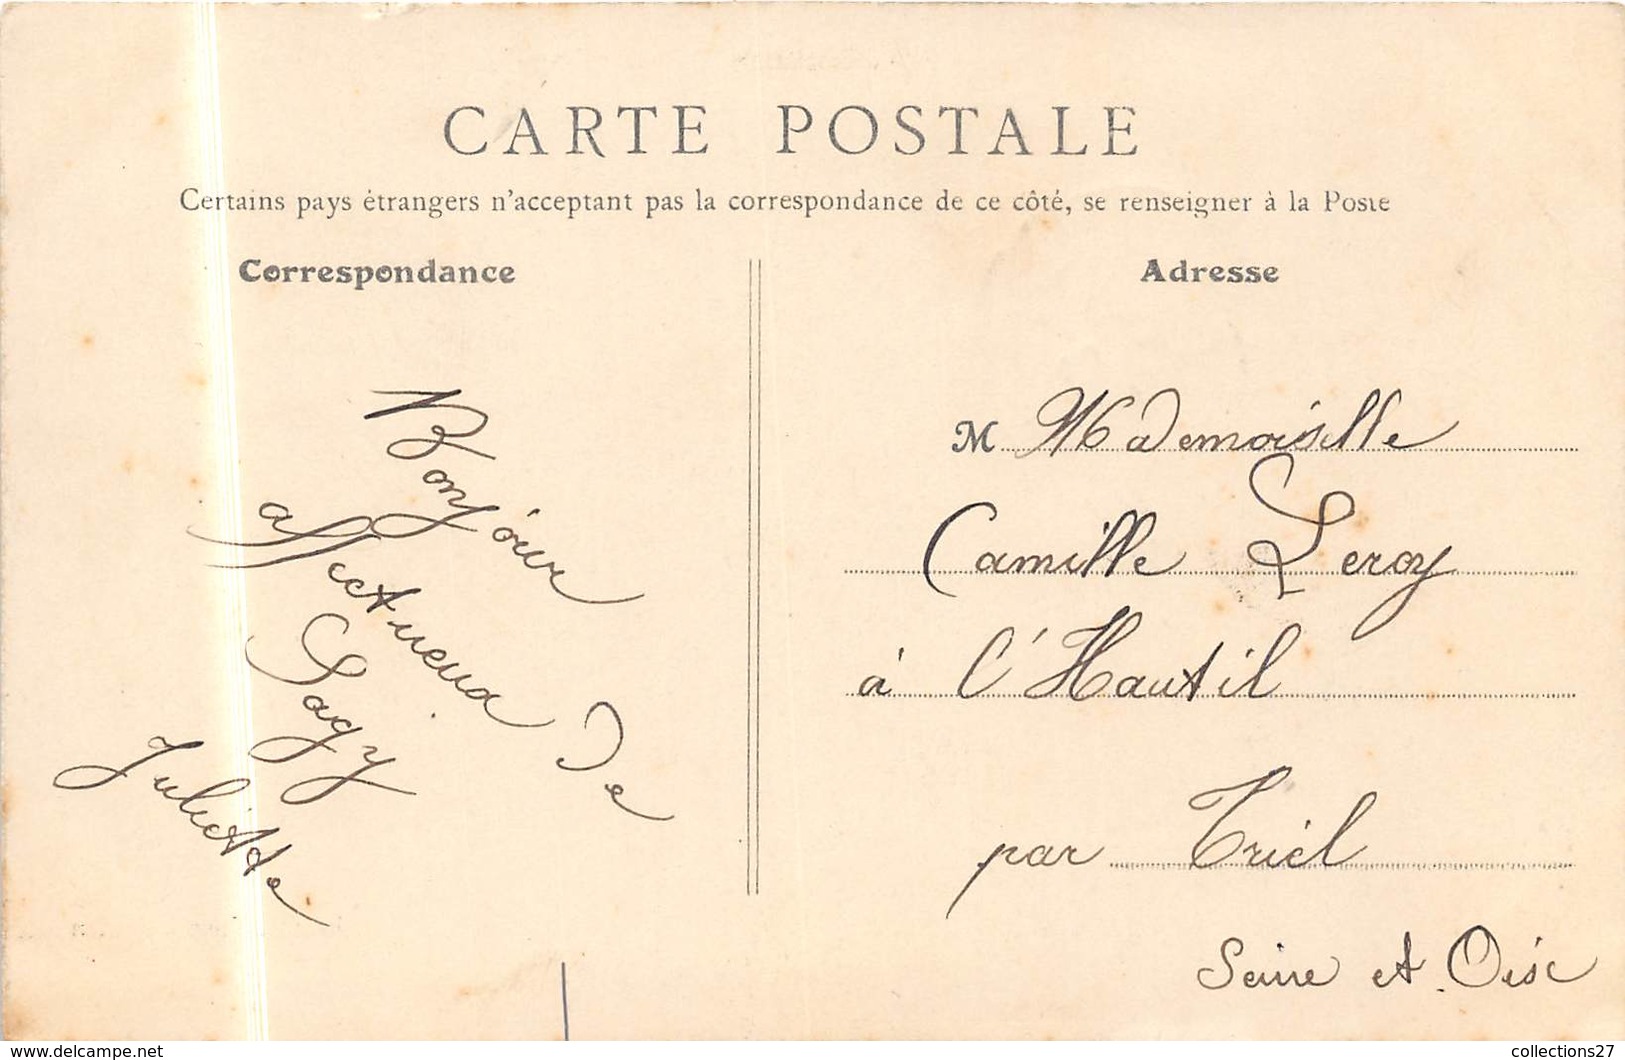 CARTE POSTALE
Certains pays étrangers n'acceptant pas la correspondance de ce côté, se renseigner à la Poste
Correspondance
Bonjour
affectueux de
Sagy
Juliette
Adresse
M Mademoiselle
Camille Leroy
à l'Hautil
par Triel
Seine et Oise
www.delcampe.net
collections27